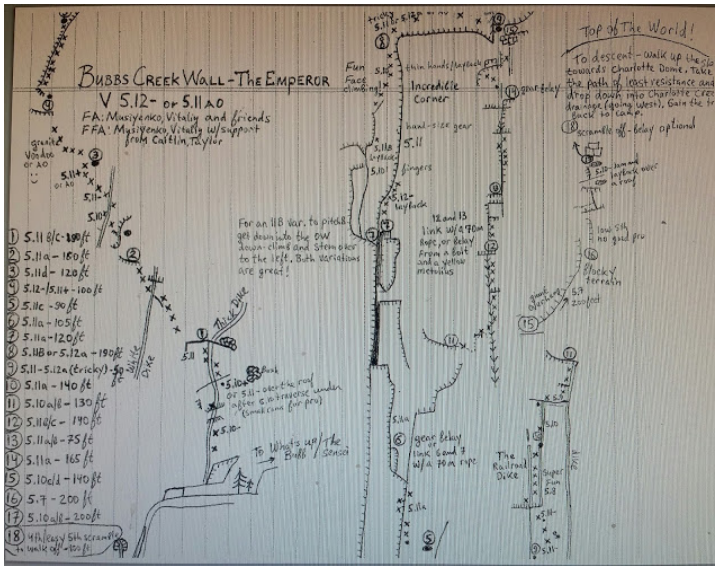 BUBBS CREEK WALL - THE EMPEROR
V 5.12- or 5.11 A0
FA: Musiyenko, Vitaliy and friends
FFA: Musiyenko, Vitaliy w/support
from Caitlin, Taylor
granite
Voodoo
or A0
3
5.11+
or A0
5.11-
5.10
2
White
Dike
1 5.11 B/c - 180ft
2 5.11a - 180ft
3 5.11d - 120ft
4 5.12-/5.11+ - 100ft
5 5.11c - 90ft
6 5.11a - 105ft
7 5.11a - 120ft
8 5.11B or 5.12a - 190ft
9 5.11 - 5.12a (tricky) -
10 5.11a - 140ft
11 5.10a/B - 130ft
12 5.11B/c - 190ft
13 5.11a/B - 75ft
14 5.11a - 165ft
15 5.10c/d - 140ft
16 5.7 - 200ft
17 5.10a/B - 200ft
18 4th/easy 5th scramble
to walk off -
1
Thick Dike
5.11
5.10
Bush
or 5.11 - over the roof
after 5.10 traverse under
(small cams for pro)
5.10-
To What's up/The
Bubb Sensei
For an 11B var. to pitch 8
get down into the OW
down-climb and stem over
to the left. Both variations
are great!
tricky
8
Fun
Face
climbing
5.10
5.11a
Layback
5.10
thin hands/layback pro
Incredible
Corner
hand-size gear
5.11
fingers
5.12-
layback
7
12 and 13
link w/a 70m
Rope, or Belay
From a Bolt
and a yellow
metolius
9
15
14 gear belay
12
11
5.11a
6 gear Belay
or
link 6 and 7
w/a 70m rope
5.11a
5
Top of The World!
To descent - walk up the
towards Charlotte Dome. Take
the path of least resistance and
drop down into Charlotte
drainage (going west), Gain the
Back to camp.
18 scramble off - Belay optional
layback over
a roof
low 5th
no good pro
16
Blocky
terrain
giant
5.7
200feet
15
11
5.9
5.10
10
The
Railroad
Dike
Super
Fun
5.8
Dike
5.11-
9 5.11-